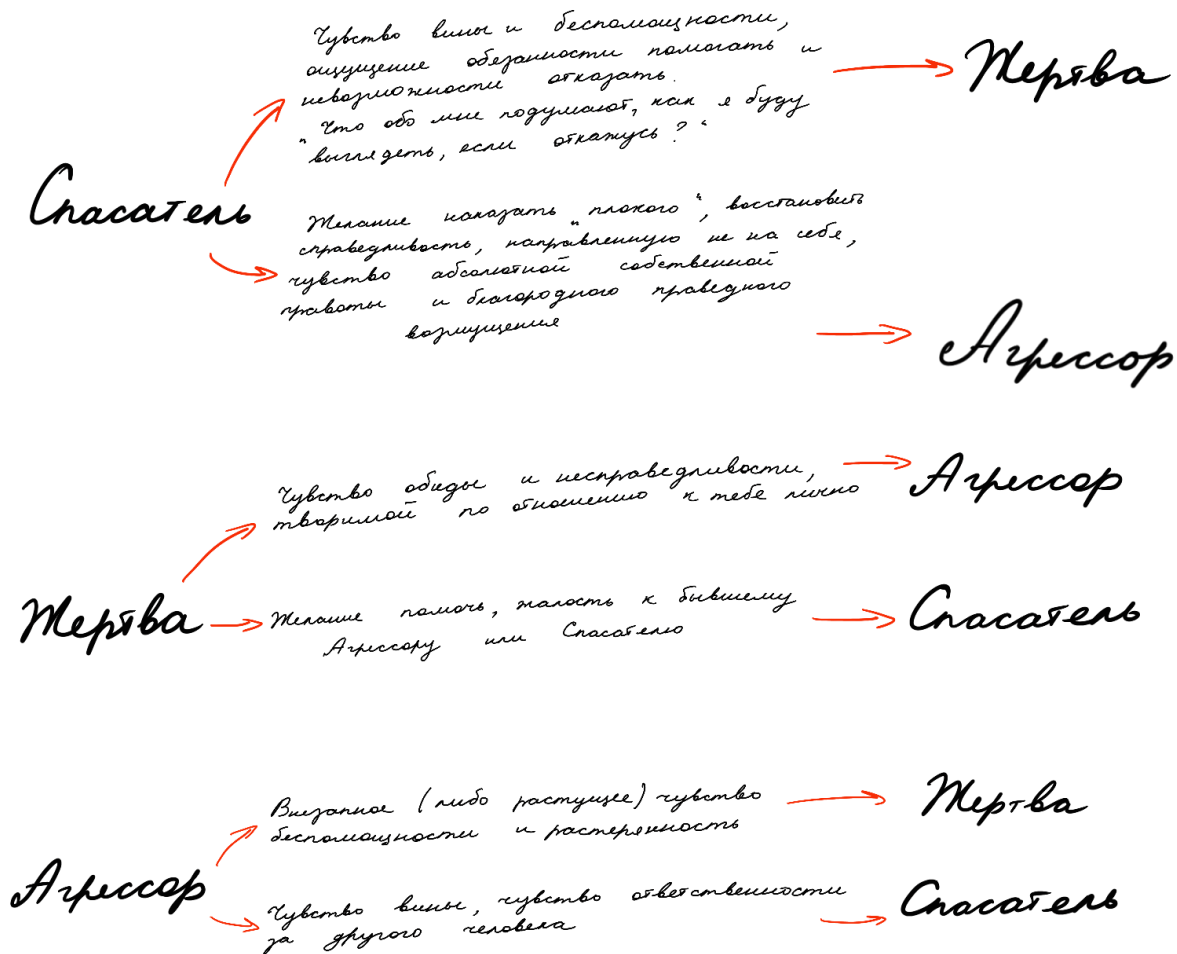 Чувство вины и беспомощности,
ощущение обязанности помогать и
невозможности отказать.
"Что обо мне подумают, как я буду
выглядеть, если откажусь?"
Жертва
Спасатель
Желание наказать "плохого", восстановить
справедливость, направленную не на себя,
чувство абсолютной собственной
правоты и благородного праведного
возмущения
Агрессор
Чувство обиды и несправедливости,
творимой по отношению к тебе лично
Агрессор
Жертва
Желание помочь, жалость к бывшему
Агрессору или Спасателю
Спасатель
Внезапное (либо растущее) чувство
беспомощности и растерянность
Жертва
Агрессор
Чувство вины, чувство ответственности
за другого человека
Спасатель